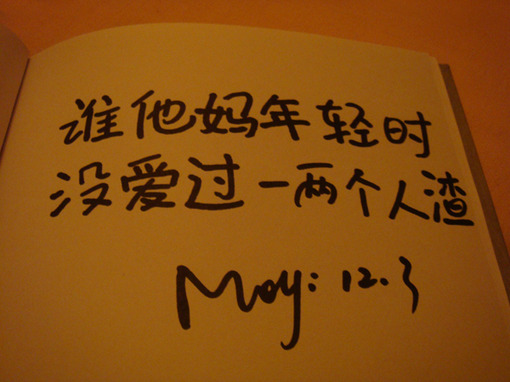 谁他妈年轻时
没爱过一两个人渣
May: 12.3